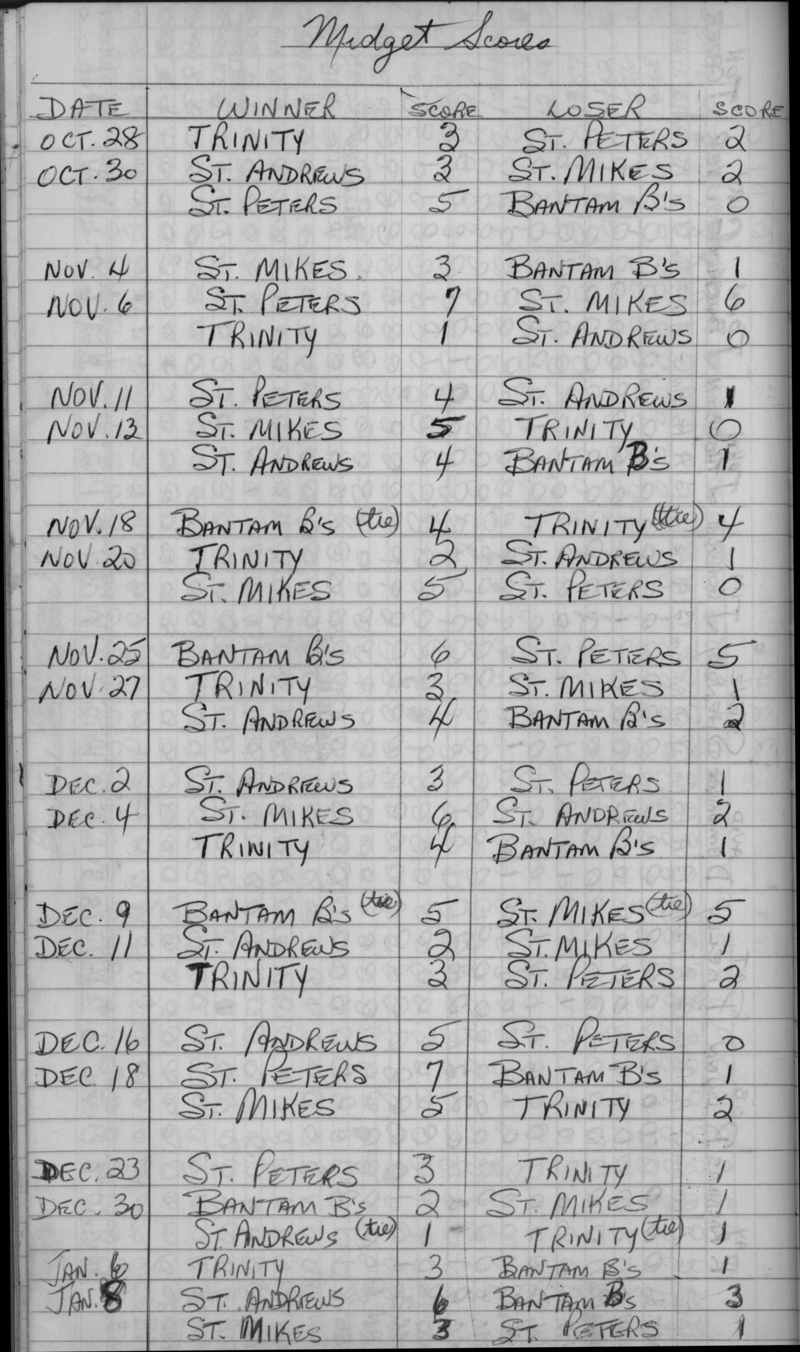 Midget Scores
DATE WINNER SCORE LOSER SCORE
OCT. 28 TRINITY 3 ST. PETERS 2
OCT. 30 ST. ANDREWS 3 ST. MIKES 2
ST. PETERS 5 BANTAM B'S 0
NOV. 4 ST. MIKES. 3 BANTAM B'S 1
NOV. 6 ST. PETERS 7 ST. MIKES 6
TRINITY 1 ST. ANDREWS 0
NOV. 11 ST. PETERS 4 ST. ANDREWS 1
NOV. 13 ST. MIKES 5 TRINITY 0
ST. ANDREWS 4 BANTAM B's 1
NOV. 18 BANTAM B's (tie) 4 TRINITY (tie) 4
NOV. 20 TRINITY 2 ST. ANDREWS 1
ST. MIKES 5 ST. PETERS 0
NOV. 25 BANTAM B's 6 ST. PETERS 5
NOV. 27 TRINITY 3 ST. MIKES 1
ST. ANDREWS 4 BANTAM B's 2
DEC. 2 ST. ANDREWS 3 ST. PETERS 1
DEC. 4 ST. MIKES 6 ST. ANDREWS 2
TRINITY 4 BANTAM B's 1
DEC. 9 BANTAM B's (tie) 5 ST. MIKES (tie) 5
DEC. 11 ST. ANDREWS 2 ST. MIKES 1
TRINITY 3 ST. PETERS 2
DEC. 16 ST. ANDREWS 5 ST. PETERS 0
DEC. 18 ST. PETERS 7 BANTAM B's 1
ST. MIKES 5 TRINITY 2
DEC. 23 ST. PETERS 3 TRINITY 1
DEC. 30 BANTAM B's 2 ST. MIKES 1
ST. ANDREWS (tie) 1 TRINITY (tie) 1
JAN. 6 TRINITY 3 BANTAM B's 1
JAN. 8 ST. ANDREWS 6 BANTAM B's 3
ST. MIKES 3 ST. PETERS 1